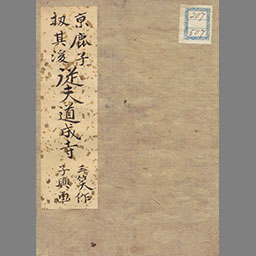 京鹿子
扨其後
従夫道成寺
三笑作
子興画
207